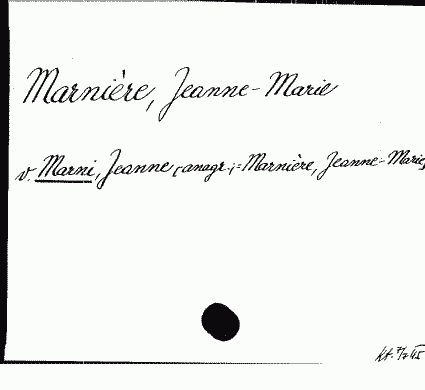 Marnière, Jeanne-Marie
v. Marni, Jeanne (anagr.;=Marnière, Jeanne-Marie)